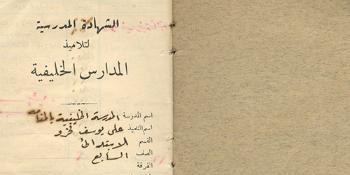 الشهادة المدرسية
لتلاميذ
المدارس الخليفية
اسم المدرسة المدرسة الخليفية بالمنامة
اسم التلميذ علي يوسف فخرو
القسم الابتدائي
الصف السابع
الفرقة